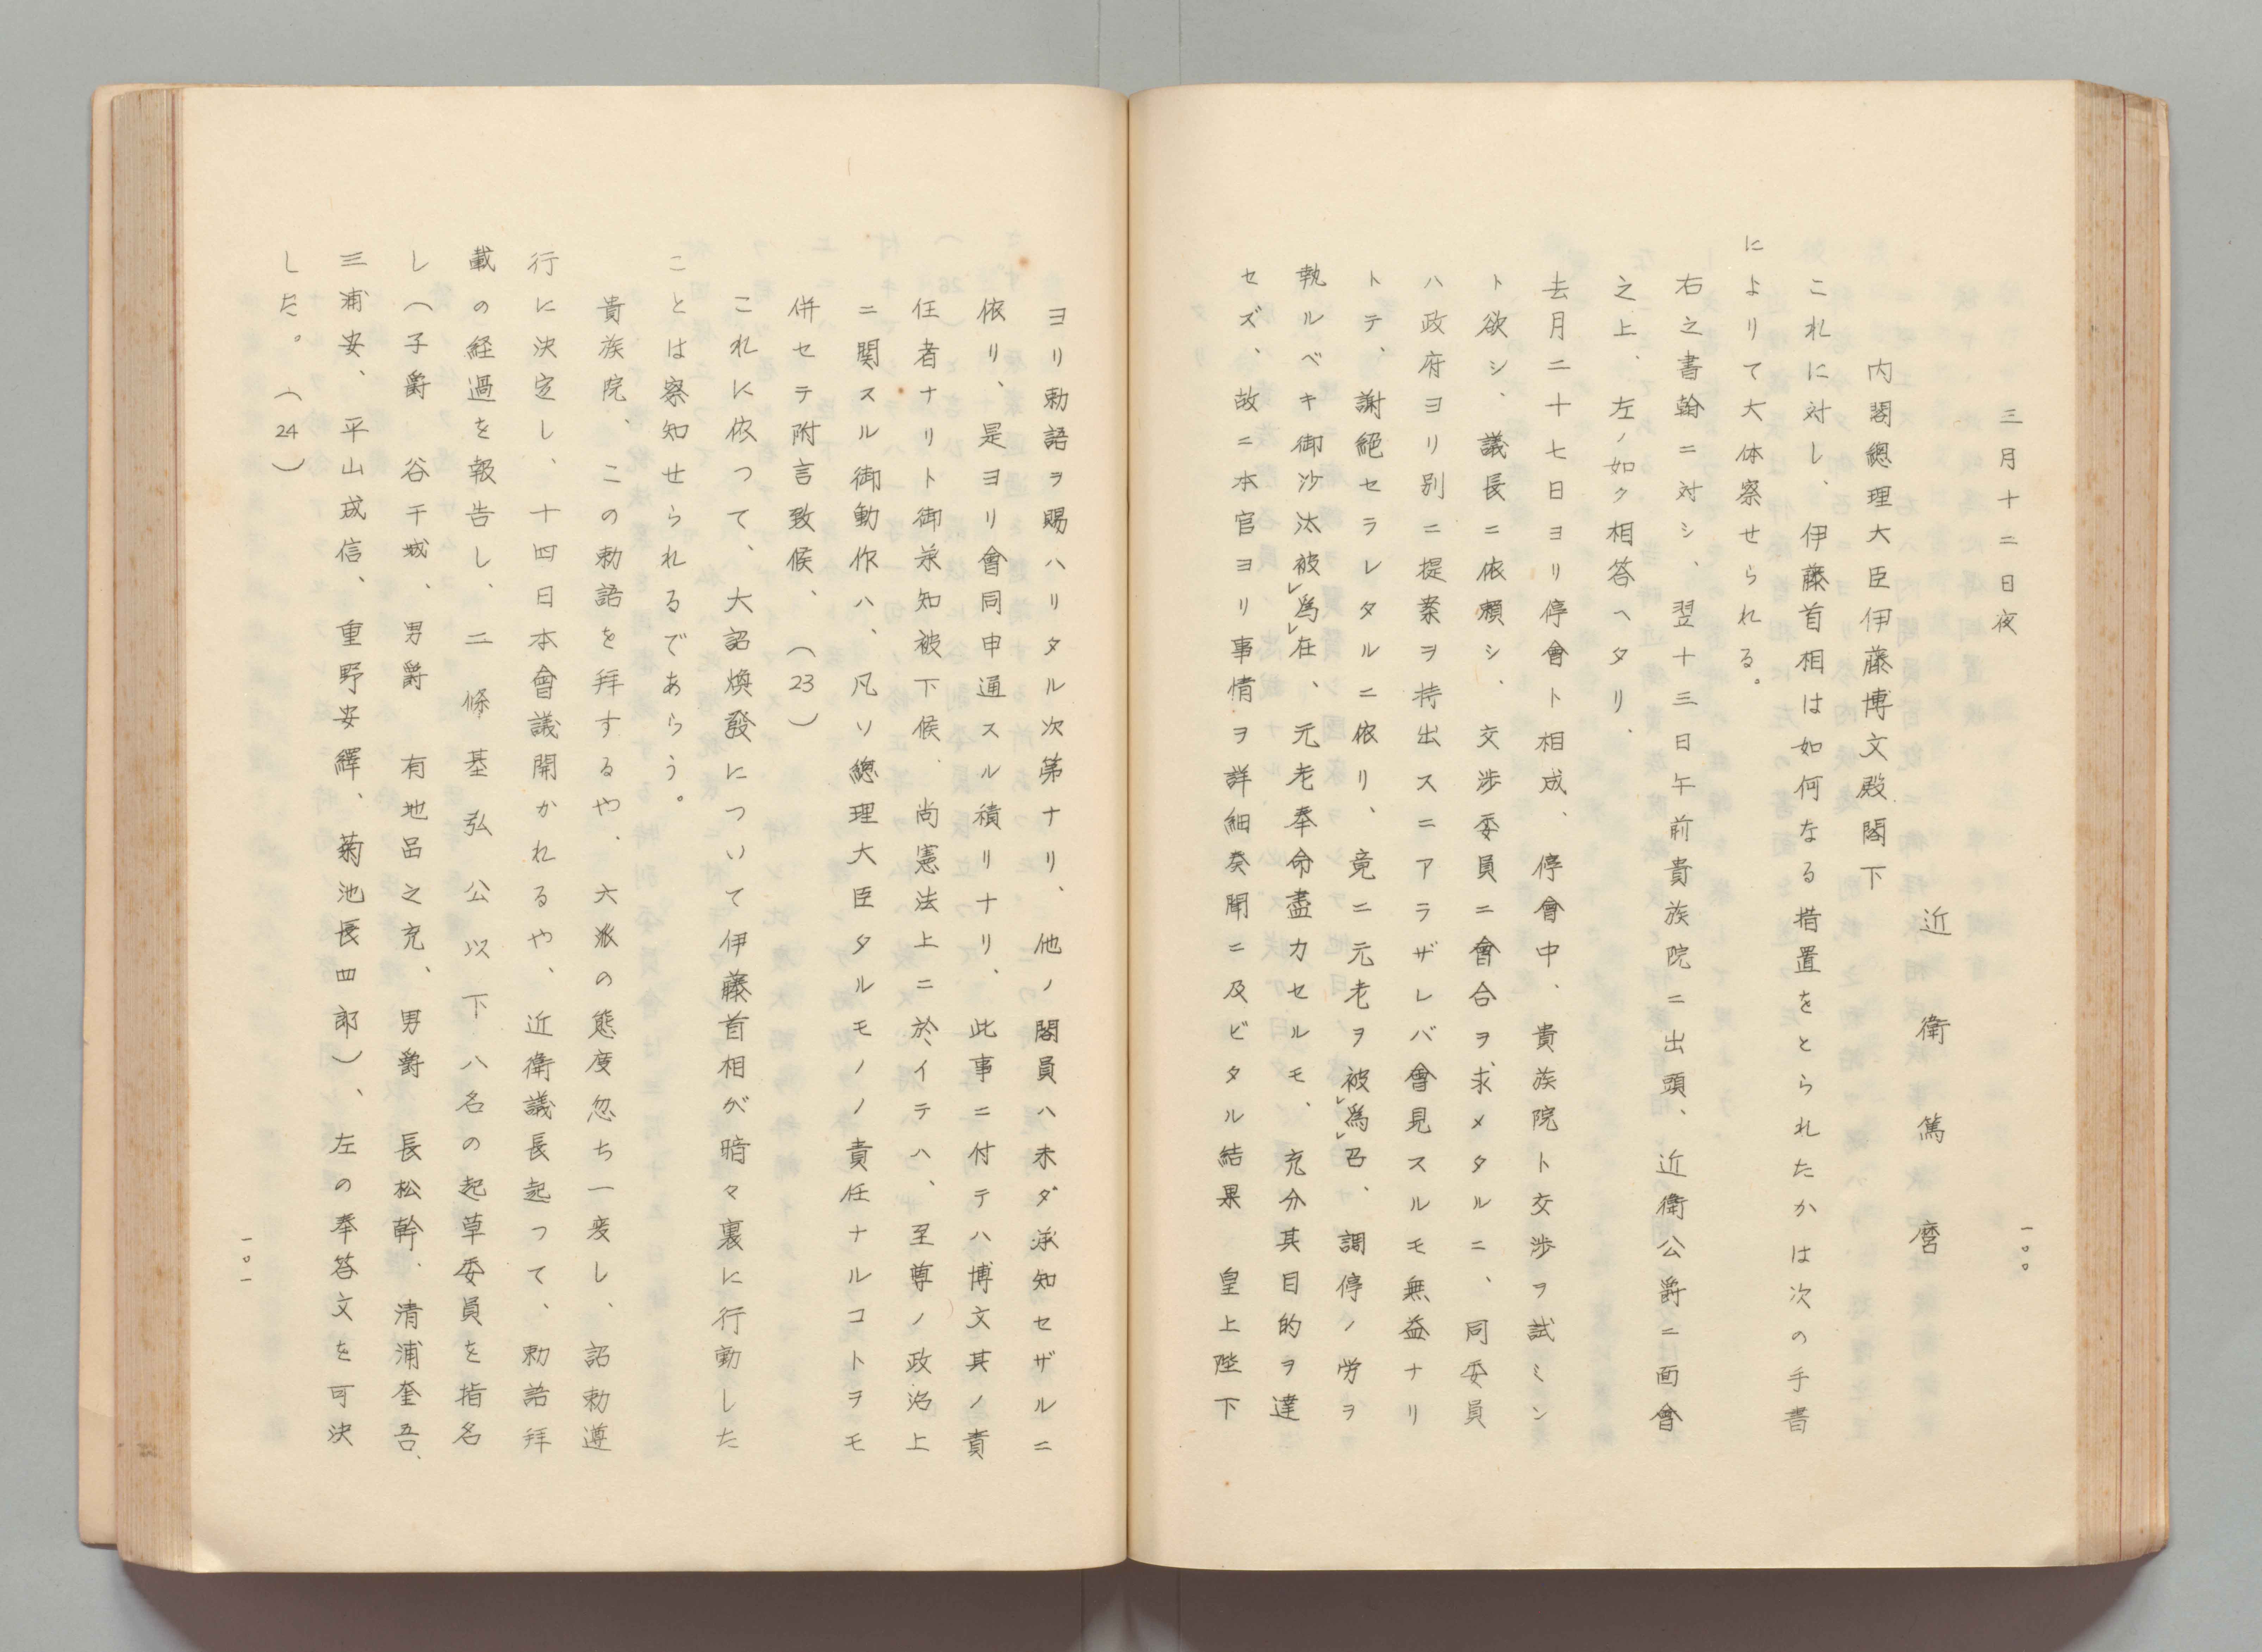 一〇〇
三月十二日夜
近衛篤麿
内閣總理大臣伊藤博文殿閣下
これに対し、伊藤首相は如何なる措置をとられたかは次の手書
によりて大体察せられる。
右之書翰ニ対シ、翌十三日午前貴族院ニ出頭、近衛公爵ニ面會
之上、左ノ如ク相答ヘタリ、
去月二十七日ヨリ停會ト相成、停會中、貴族院ト交渉ヲ試ミン
ト欲シ、議長ニ依頼シ、交渉委員ニ會合ヲ求メタルニ、同委員
ハ政府ヨリ別ニ提案ヲ持出スニアラザレバ會見スルモ無益ナリ
トテ、謝絕セラレタルニ依リ、竟ニ元老ヲ被レ爲レ召、調停ノ労ヲ
執ルベキ御沙汰被レ爲レ在、元老奉命盡力セルモ、充分其目的ヲ達
セズ、故ニ本官ヨリ事情ヲ詳細奏聞ニ及ビタル結果 皇上陛下
ヨリ勅語ヲ賜ハリタル次第ナリ、他ノ閣員ハ未ダ承知セザルニ
依リ、是ヨリ會同申通スル積リナリ、此事ニ付テハ博文其ノ責
任者ナリト御承知被下候、尚憲法上ニ於イテハ、至尊ノ政治上
ニ関スル御動作ハ、凡ソ總理大臣タルモノノ責任ナルコトヲモ
併セテ附言致候、(23)
これに依つて、大詔煥發について伊藤首相が暗々裏に行動した
ことは察知せられるであらう。
貴族院、この勅語を拜するや、六派の態度忽ち一変し、詔勅遵
行に決定し、十四日本會議開かれるや、近衛議長起つて、勅語拜
載の経過を報告し、二條基弘公以下八名の起草委員を指名
し(子爵 谷干城、男爵 有地品之允、男爵 長松幹、清浦奎吾、
三浦安、平山成信、重野安繹、菊池長四郎)、左の奉答文を可決
した。(24)
一〇一